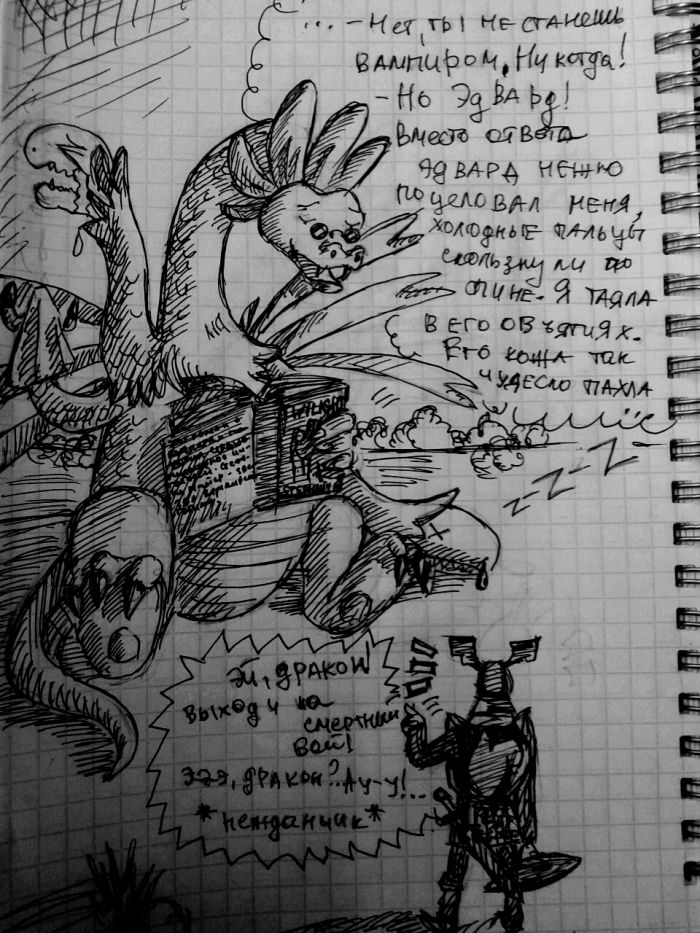 ... - Нет, ты не станешь
вампиром. Никогда!
- Но Эдвард!
Вместо ответа
Эдвард нежно
поцеловал меня,
холодные пальцы
скользнули по
спине. Я таяла
в его объятиях.
Его кожа так
чудесно пахла
z-z-z
Эй, дракон
выходи на
смертный
бой!
Ээээ, дракон? Ау-у!...
*нежданчик*